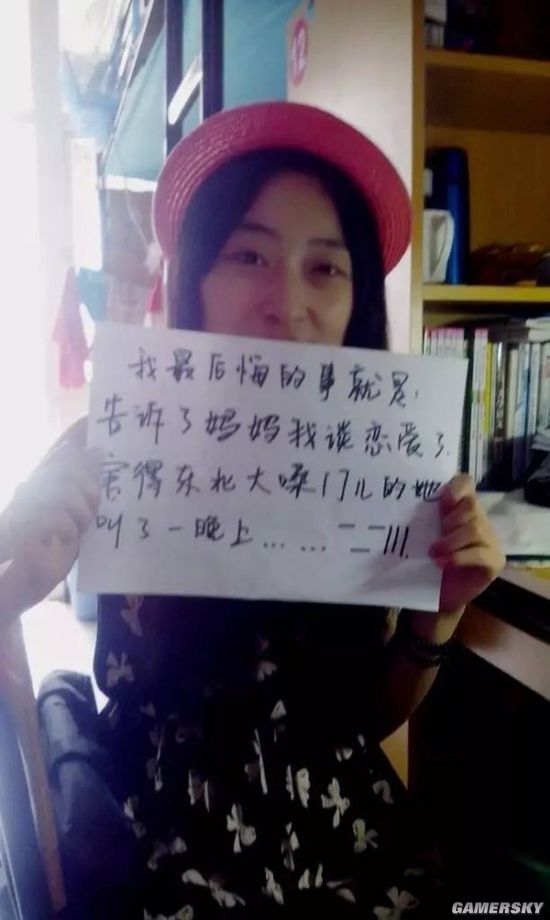 12
我最后悔的事就是,
告诉了妈妈我谈恋爱了.
害得东北大嗓门儿的她
叫了一晚上……二二111.
GAMERSKY